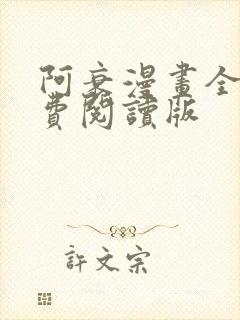 阿衰漫畫全
費閱讀版
許文宗